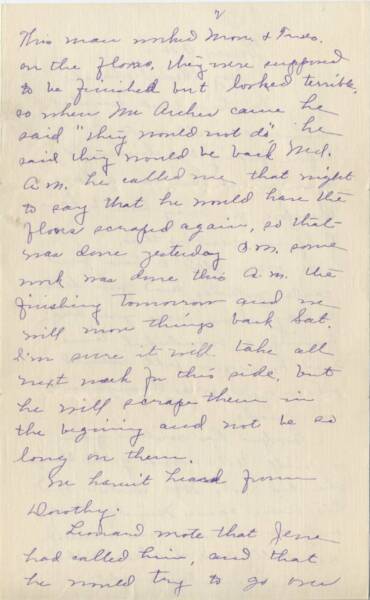 2
This man worked Mon. & Tues.
on the floors, they were supposed
to be finished but looked terrible.
so when Mr Archer came he
said "they would not do" he
said they would be back Wed.
A.M. he called me that night
to say that he would have the
floors scraped again, so that
was done yesterday A.M. some
work was done this A.M. the
finishing tomorrow and we
will move things back Sat.
I'm sure it will take all
next week for this side, but
he will scrape them in
the begining and not be so
long on them.
We haven't heard from
Dorothy.
Leonard wrote that Jene
had called him, and that
he would try to go over